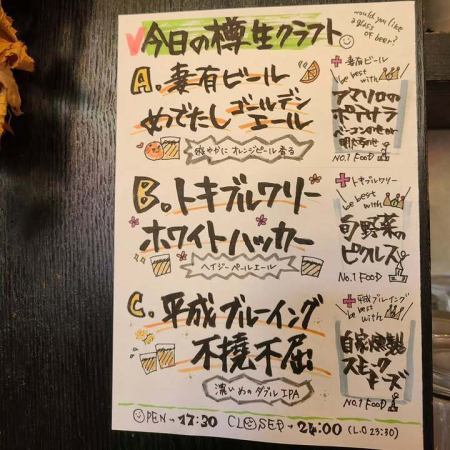 今日の樽生クラフト
would you like
a glass
of beer?
A. 妻有ビール
めでたしゴールデン
エール
爽やかに オレンジピール香る
+ 妻有ビール
be best with
アマリロの
ポテサラ
ベーコンのせor
明太のせ
NO.1 FOOD
B. トキブルワリー
ホワイトハッカー
ヘイジーペールエール
+ トキブルワリー
be best
with
旬野菜の
ピクルス
No.1 FOOD
C. 平成ブルーイング
不撓不屈
濃いめのダブルIPA
+ 平成ブルーイング
be best
with
自家燻製
スモーク
チーズ
NO.1 FOOD
OPEN→17:30 CLOSED→24:00 (L.O 23:30)